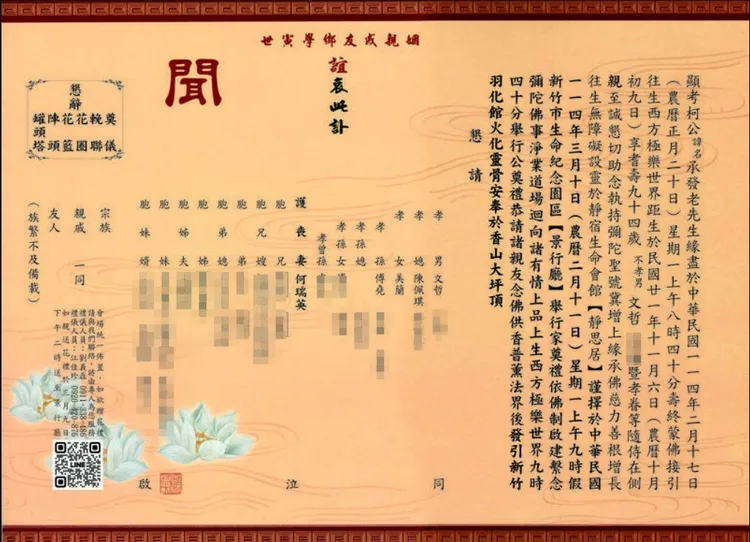 世寅學鄉友戚親姻
顯考柯公諱名承發老先生緣盡於中華民國一一四年二月十七日
（農曆正月二十日）星期一上午八時四十分壽終蒙佛接引
往生西方極樂世界距生於民國廿一年十一月六日（農曆十月
初九日）享耆壽九十四歲 不孝男 文哲 暨孝眷等隨侍在側
親至誠懇切助念執持彌陀聖號冀增上緣承佛慈力善根增長
往生無障礙設靈於靜宿生命會館【靜思居】謹擇於中華民國
一一四年三月十日（農曆二月十一日）星期一上午九時假
新竹市生命紀念園區【景行廳】舉行家奠禮依佛制啟建繫念
彌陀佛事淨業道場迴向諸有情上品上生西方極樂世界九時
四十分舉行公奠禮恭請諸親友念佛供香普薰法界後發引新竹
羽化館火化靈骨安奉於香山大坪頂
懇請
誼哀此訃
聞
懇辭
奠儀
輓聯
花圈
花籃
陣頭
罐頭塔
孝男 文哲
孝媳 陳佩琪
孝女 美蘭
孝孫 傅堯
孝孫媳
孝孫女
孝曾孫
護喪妻 何瑞英
胞兄
胞兄嫂
胞弟
胞弟媳
胞姊
胞姊夫
胞妹
胞妹婿
宗族
親戚
友人
一同
（族繁不及備載）
同
泣
啟
會場統一佈置，如欲贈花禮
請與我們聯絡，將由專人為您服務
禮儀人員：江佳珍
如親送花禮於三月九日
下午二時送至景行廳
LINE